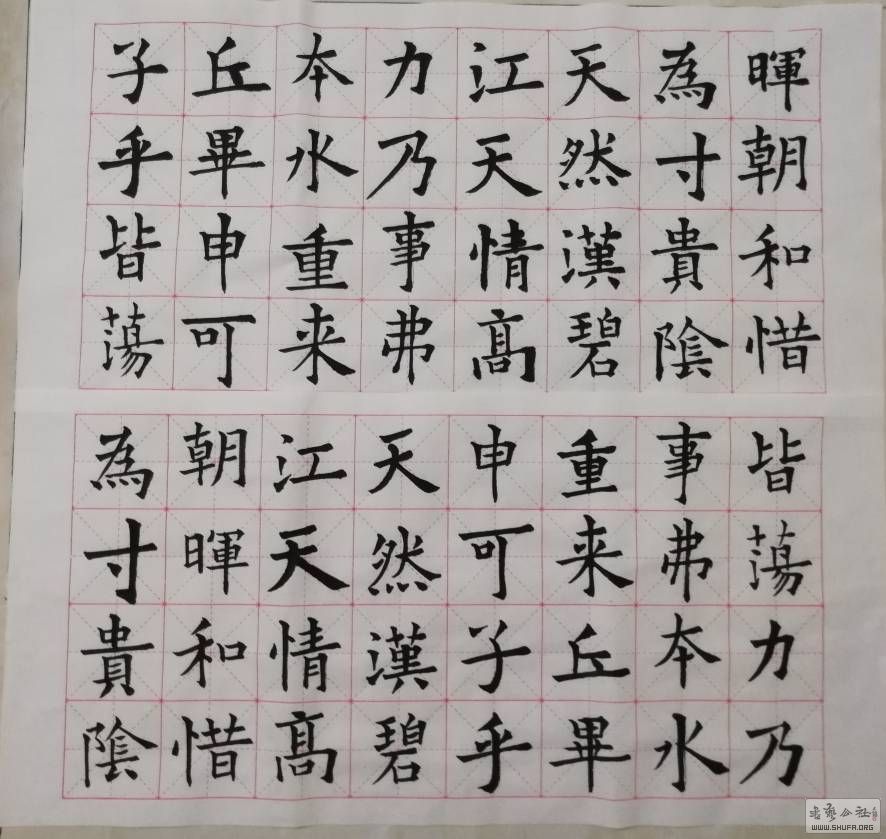 暉朝和惜
為寸貴陰
天然漢碧
江天情髙
力乃事弗
本水重来
丘畢申可
子乎皆蕩
皆蕩力乃
事弗本水
重来丘畢
申可子乎
天然漢碧
江天情髙
朝暉和惜
為寸貴陰
WWW.SHUFA.ORG